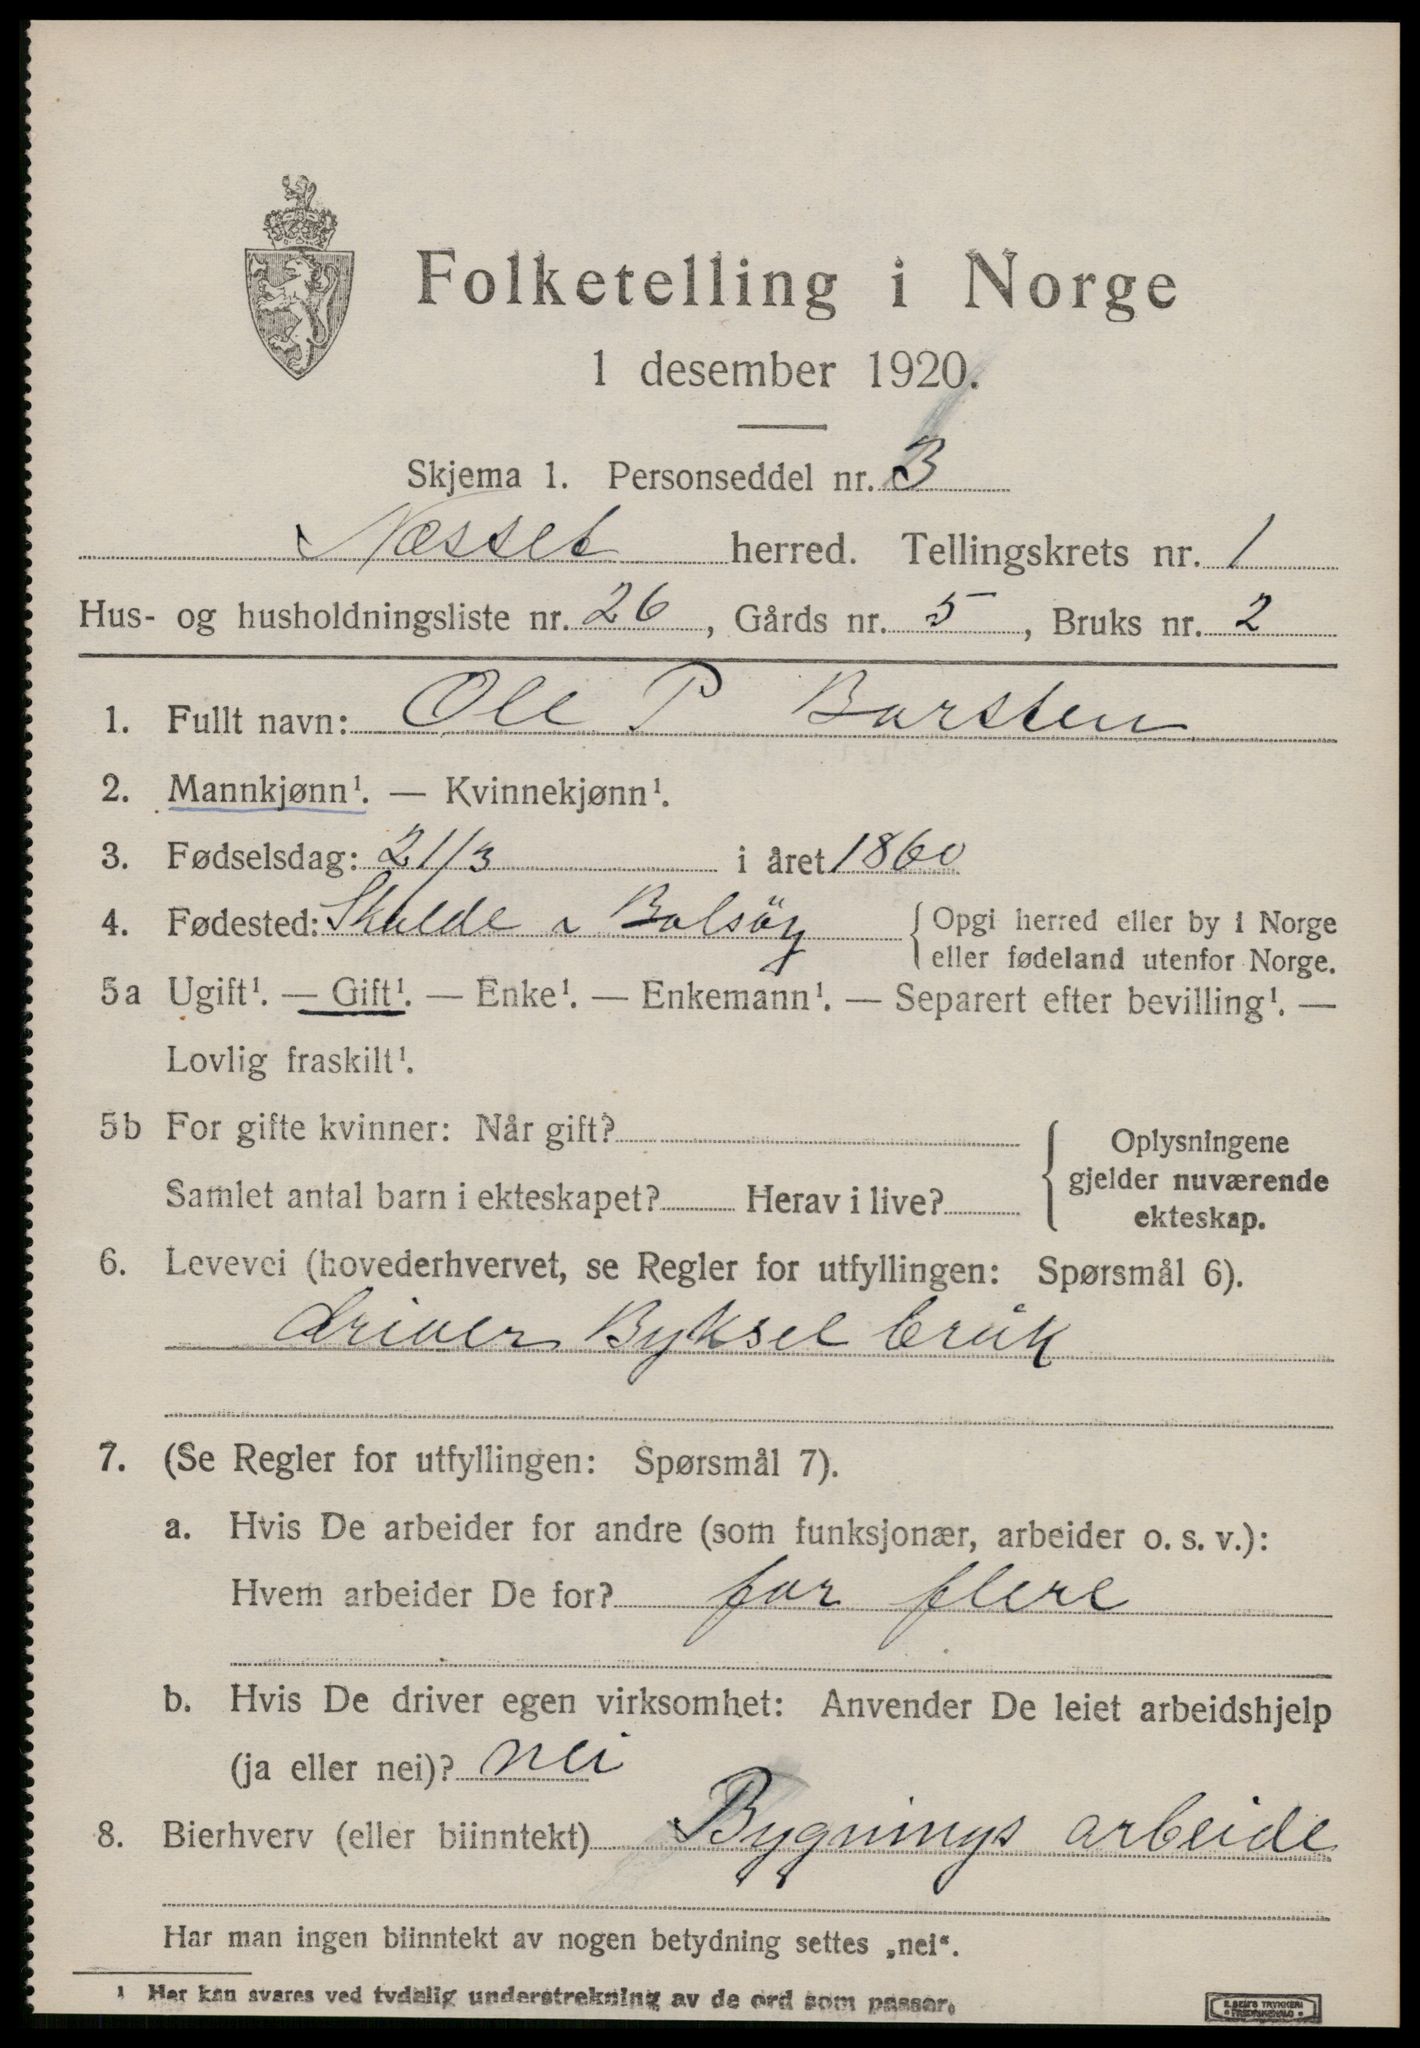 Folketelling i Norge
1 desember 1920.
Skjema 1. Personseddel nr. 3
Næsset herred. Tellingskrets nr. 1
Hus- og husholdningsliste nr. 26, Gårds nr. 5, Bruks nr. 2
1. Fullt navn: Ole P Barsten
2. Mannkjønn¹. — Kvinnekjønn¹.
3. Fødselsdag: 21/3 i året 1860
4. Fødested: Skalde Bolsöy { Opgi herred eller by i Norge
eller fødeland utenfor Norge.
5a Ugift¹. — Gift¹. — Enke¹. — Enkemann¹. — Separert efter bevilling¹. —
Lovlig fraskilt¹.
5b For gifte kvinner: Når gift?
Samlet antal barn i ekteskapet? Herav i live?
{ Oplysningene
gjelder nuværende
ekteskap.
6. Levevei (hovederhvervet, se Regler for utfyllingen: Spørsmål 6).
driver Byksel bruk
7. (Se Regler for utfyllingen: Spørsmål 7).
a. Hvis De arbeider for andre (som funksjonær, arbeider o. s. v.):
Hvem arbeider De for? for flere
b. Hvis De driver egen virksomhet: Anvender De leiet arbeidshjelp
(ja eller nei)? nei
8. Bierhverv (eller biinntekt) Bygnings arbeide
Har man ingen biinntekt av nogen betydning settes „nei“.
¹ Her kan svares ved tydelig understrekning av de ord som passer.